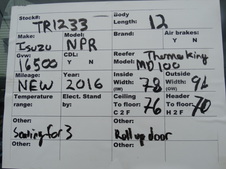 Stock#: TR1233 Body Length: 12
Make: Isuzu Model: NPR Brand: Air brakes: Y N
Gvw: 16500 CDL: Y N Reefer Model: Thermo king MD100
Mileage: NEW Year: 2016 Inside Width: (IW) 78 Outside Width: (OW) 96
Temperature range: Elect. Stand by: Ceiling To floor: C 2 F 76 Header To floor: H 2 F 70
Other: Seating for 3 Other: Other: Roll up door Other:
Other: